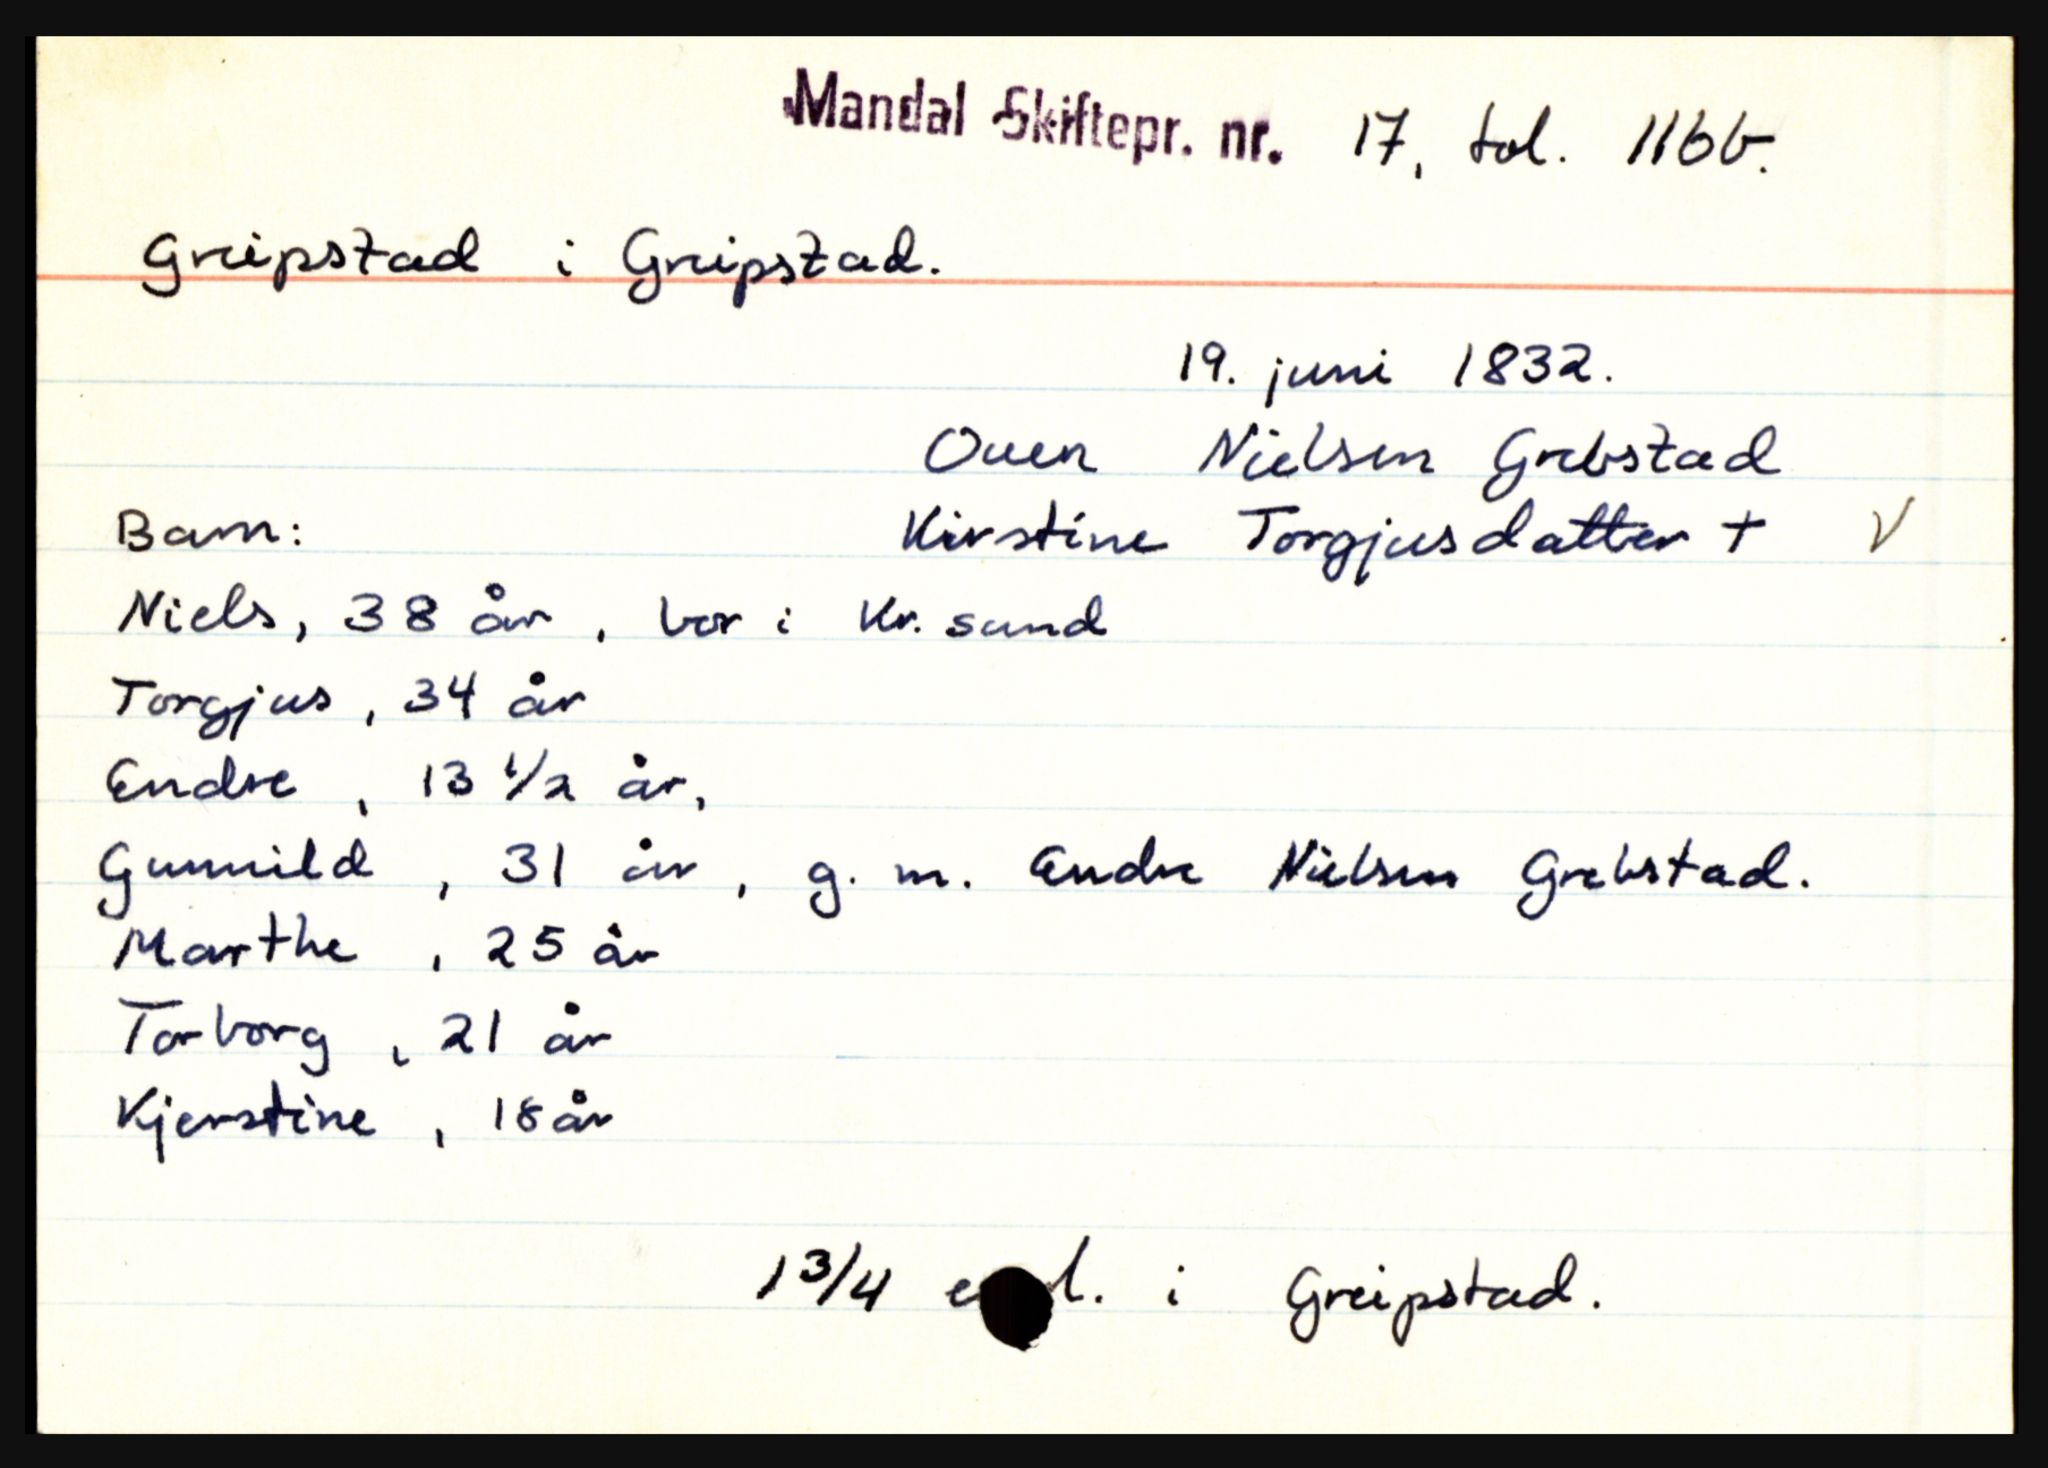 Mandal Skiftepr. nr. 17, fol. 116b.
Greipstad i Greipstad.
19. juni 1832.
Ouen Nielsen Grebstad
Barn: Kirstine Torgjusdatter + V
Niels, 38 år, bor i Kr.sund
Torgjus, 34 år
Endre, 13 1/2 år,
Gunnild, 31 år, g. m. Endre Nielsen Grebstad.
Marthe, 25 år
Torborg, 21 år
Kjerstine, 18 år
1 3/4 i Greipstad.